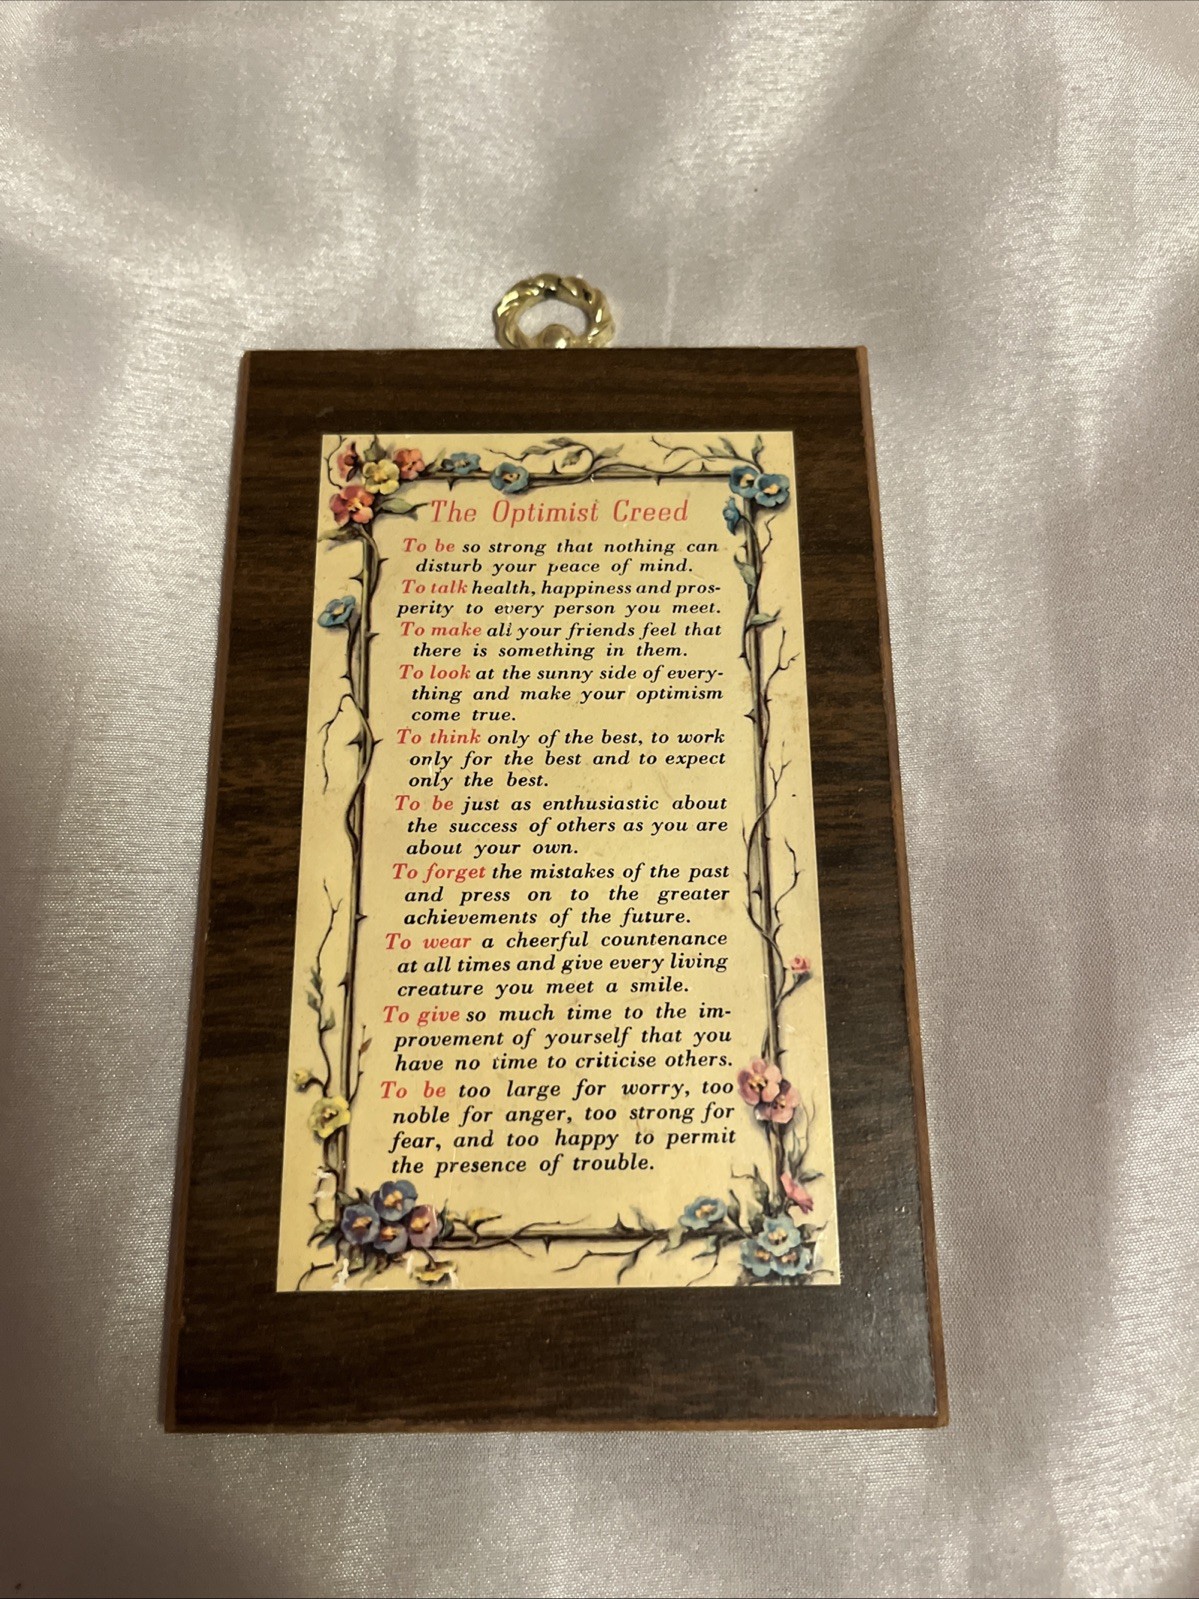 The Optimist Creed
To be so strong that nothing can
disturb your peace of mind.
To talk health, happiness and pros-
perity to every person you meet.
To make all your friends feel that
there is something in them.
To look at the sunny side of every-
thing and make your optimism
come true.
To think only of the best, to work
only for the best and to expect
only the best.
To be just as enthusiastic about
the success of others as you are
about your own.
To forget the mistakes of the past
and press on to the greater
achievements of the future.
To wear a cheerful countenance
at all times and give every living
creature you meet a smile.
To give so much time to the im-
provement of yourself that you
have no time to criticise others.
To be too large for worry, too
noble for anger, too strong for
fear, and too happy to permit
the presence of trouble.